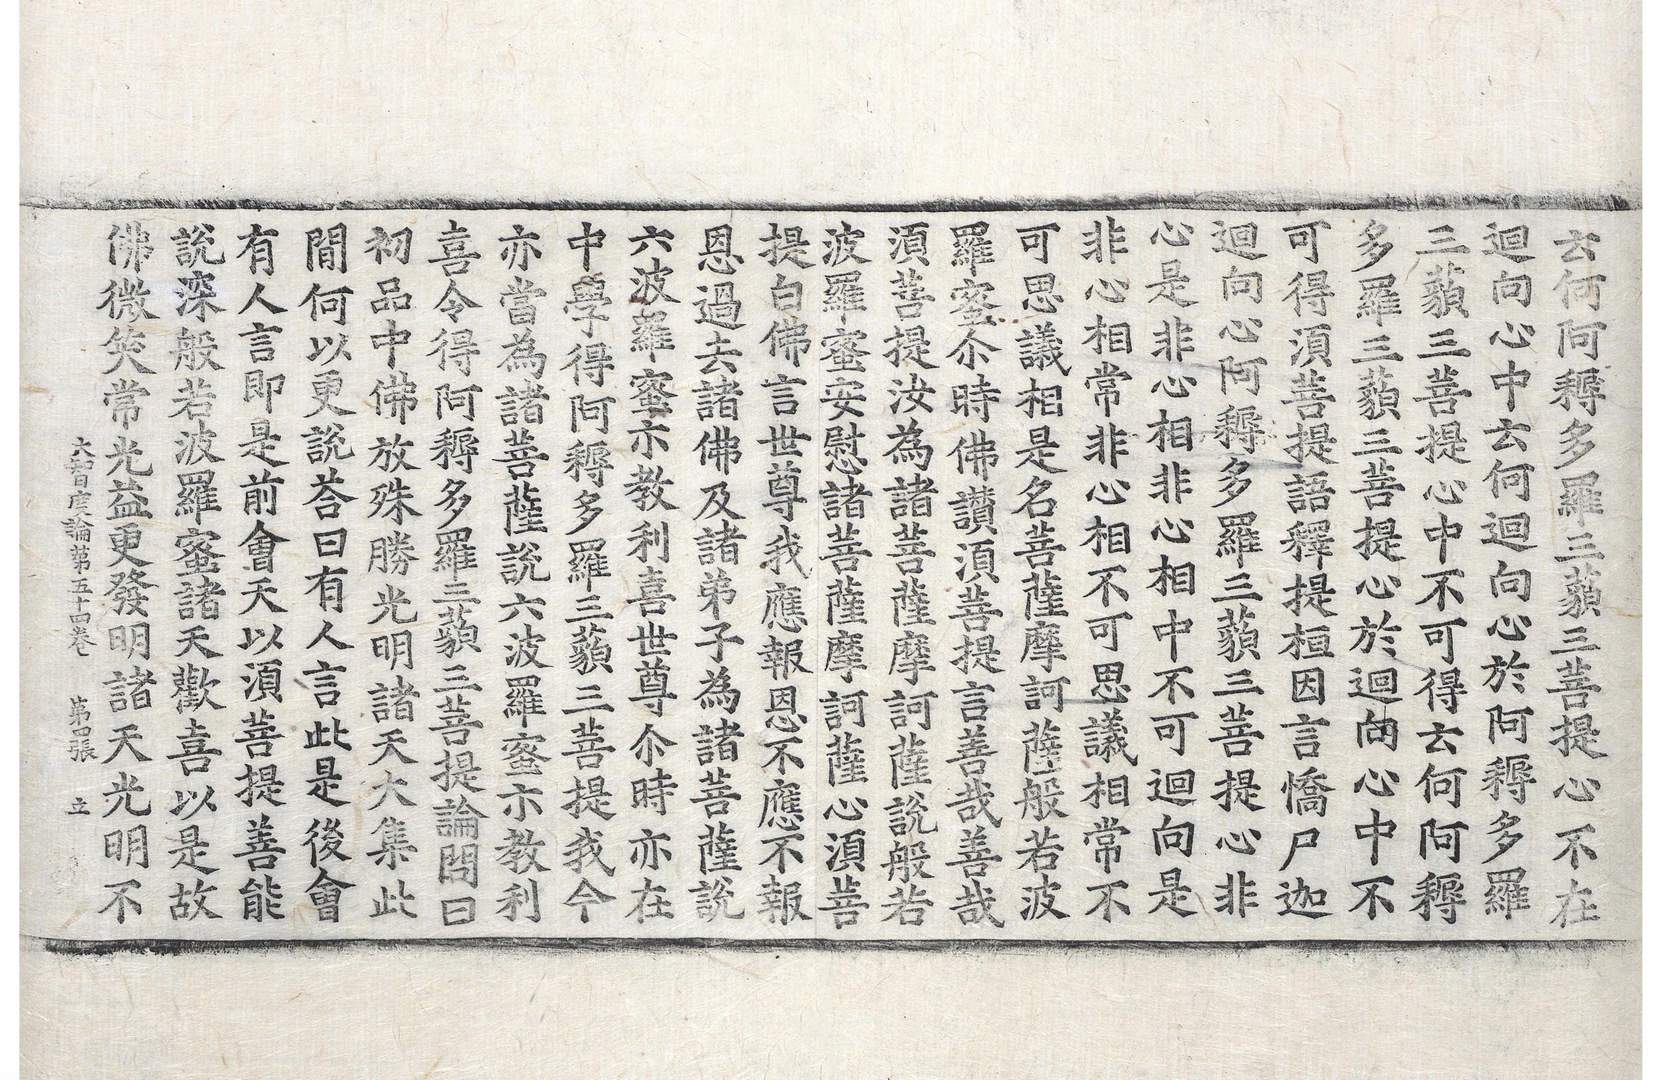 云何阿耨多羅三藐三菩提心不在
迴向心中云何迴向心於阿耨多羅
三藐三菩提心中不可得云何阿耨
多羅三藐三菩提心於迴向心中不
可得湏菩提語釋提桓因言憍尸迦
迴向心阿耨多羅三藐三菩提心非
心是非心相非心相中不可迴向是
非心相常非心相不可思議相常不
可思議相是名菩薩摩訶薩般若波
羅蜜尒時佛讚湏菩提言善哉善哉
湏菩提汝為諸菩薩摩訶薩說般若
波羅蜜安慰諸菩薩摩訶薩心湏菩
提白佛言世尊我應報恩不應不報
恩過去諸佛及諸弟子為諸菩薩說
六波羅蜜示教利喜世尊尒時亦在
中學得阿耨多羅三藐三菩提我今
亦當為諸菩薩說六波羅蜜示教利
喜令得阿耨多羅三藐三菩提論問曰
初品中佛放殊勝光明諸天大集此
間何以更說荅曰有人言此是後會
有人言即是前會天以湏菩提善能
說深般若波羅蜜諸天歡喜以是故
佛微笑常光益更發明諸天光明不
大智度論第五十四卷 第四張 立